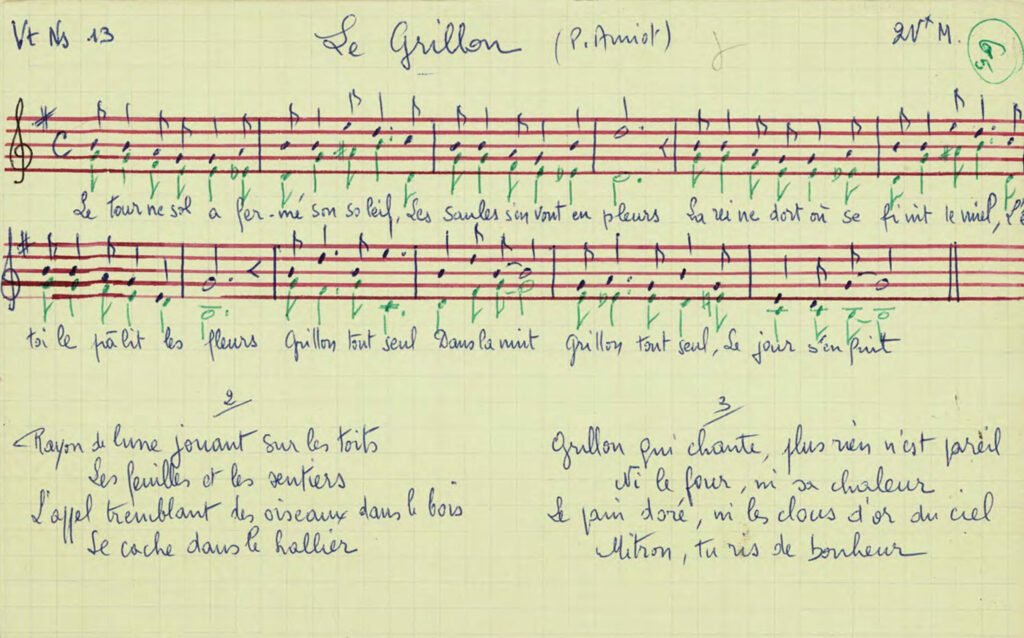 Vt Ns 13 Le Grillon (P. Amiot) 2 Vx M. 65
Le tour ne sol a fer-mé son so leil, Les saules s'en vont en pleurs La rei ne dort où se fi nit le miel, L'é
toi le pâlit les fleurs Grillon tout seul Dans la nuit Grillon tout seul, Le jour s'en fuit
2
Rayon de lune jouant sur les toits
Les feuilles et les sentiers
L'appel tremblant des oiseaux dans le bois
Se cache dans le hallier
3
Grillon qui chante, plus rien n'est pareil
Ni le four, ni sa chaleur
Le pain doré, ni les clous d'or du ciel
Mitron, tu ris de bonheur